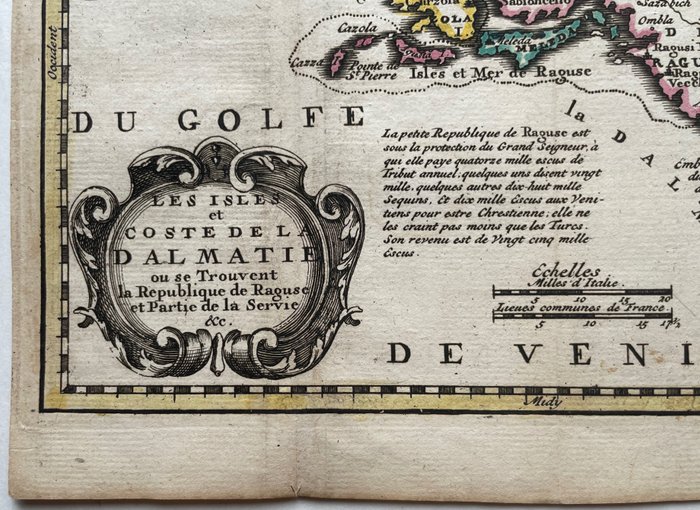 Occident
Cazola
Cazza
Pointe de
St. Pierre
OLA
I
Sabioncello
Meleda
Isles et Mer de Raguse
Sazabich
Ombla
D
Raousi
RAGU
Veech
la DAL
DU GOLFE
La petite Republique de Raguse est
sous la protection du Grand Seigneur, à
qui elle paye quatorze mille escus de
Tribut annuel; quelques uns disent vingt
mille, quelques autres dix-huit mille
Sequins, Et dix mille Escus aux Veni-
tiens pour estre Chrestienne; elle ne
les craint pas moins que les Turcs.
Son revenu est de Vingt cinq mille
Escus.
LES ISLES
et
COSTE DE LA
DALMATIE
ou se Trouvent
la Republique de Raguse
et Partie de la Servie
&c.
Echelles
Milles d'Italie.
5 10 15 20
Lieues communes de France.
5 10 15 17½
DE VENI
Midy